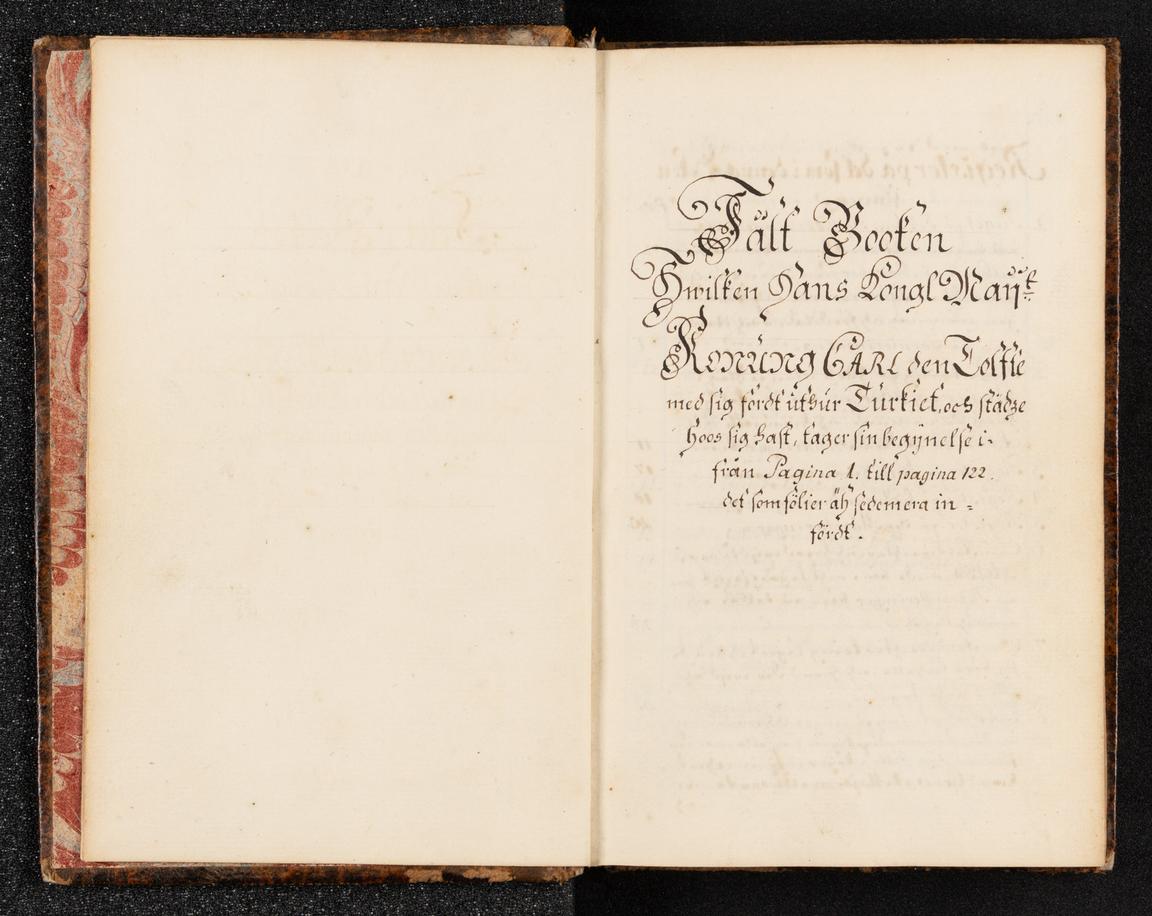 Fält Booken
Hwilken Hans Kongl Maÿtt
Konung CARL den Tolffte
med sig fördt uthur Turkiet, och städze
hoos sig haft, tager sin begÿnelse i-
från Pagina 1. till pagina 122.
det som fölier äh sedemera in =
fördt.